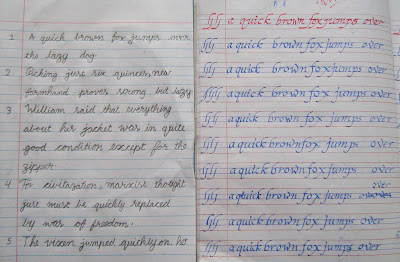 1 A quick brown fox jumps over
the lazy dog
2 Picking just six quinces, new
farmhand proves strong but lazy
3 William said that everything
about his jacket was in quite
good condition except for the
zipper
4 For civilization, marxist thought
just must be quickly replaced
by was of freedom.
5 The vixen jumped quickly on
a quick brown fox jumps over
a quick brown fox jumps over
a quick brown fox jumps over
a quick brown fox jumps over
a quick brown fox jumps over
a quick brown fox jumps over
a quick brown fox jumps over
over
a quick brown fox jumps
a quick brown fox jumps over
a quick brown fox jumps over